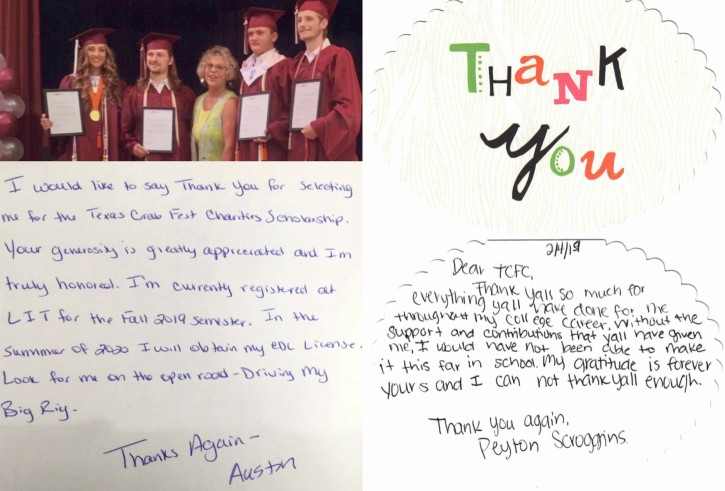 I would like to say Thank You for selecting
me for the Texas Crab Fest Charities Scholarship.
Your generosity is greatly appreciated and I'm
truly honored. I'm currently registered at
LIT for the Fall 2019 semester. In the
summer of 2020 I will obtain my CDL License.
Look for me on the open road - Driving My
Big Rig-
Thanks Again -
Austin
THANK
you
Dear TCFC,
Thank yall so much for
everything yall have done for me
throughout my college career. Without the
support and contributions that yall have given
me, I would have not been able to make
it this far in school. My gratitude is forever
yours and I can not thank yall enough.
Thank you again,
Peyton Scroggins